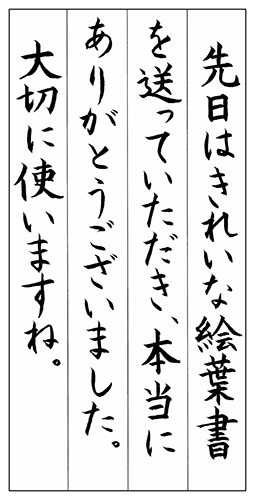 先日はきれいな絵葉書
を送っていただき、本当に
ありがとうございました。
大切に使いますね。